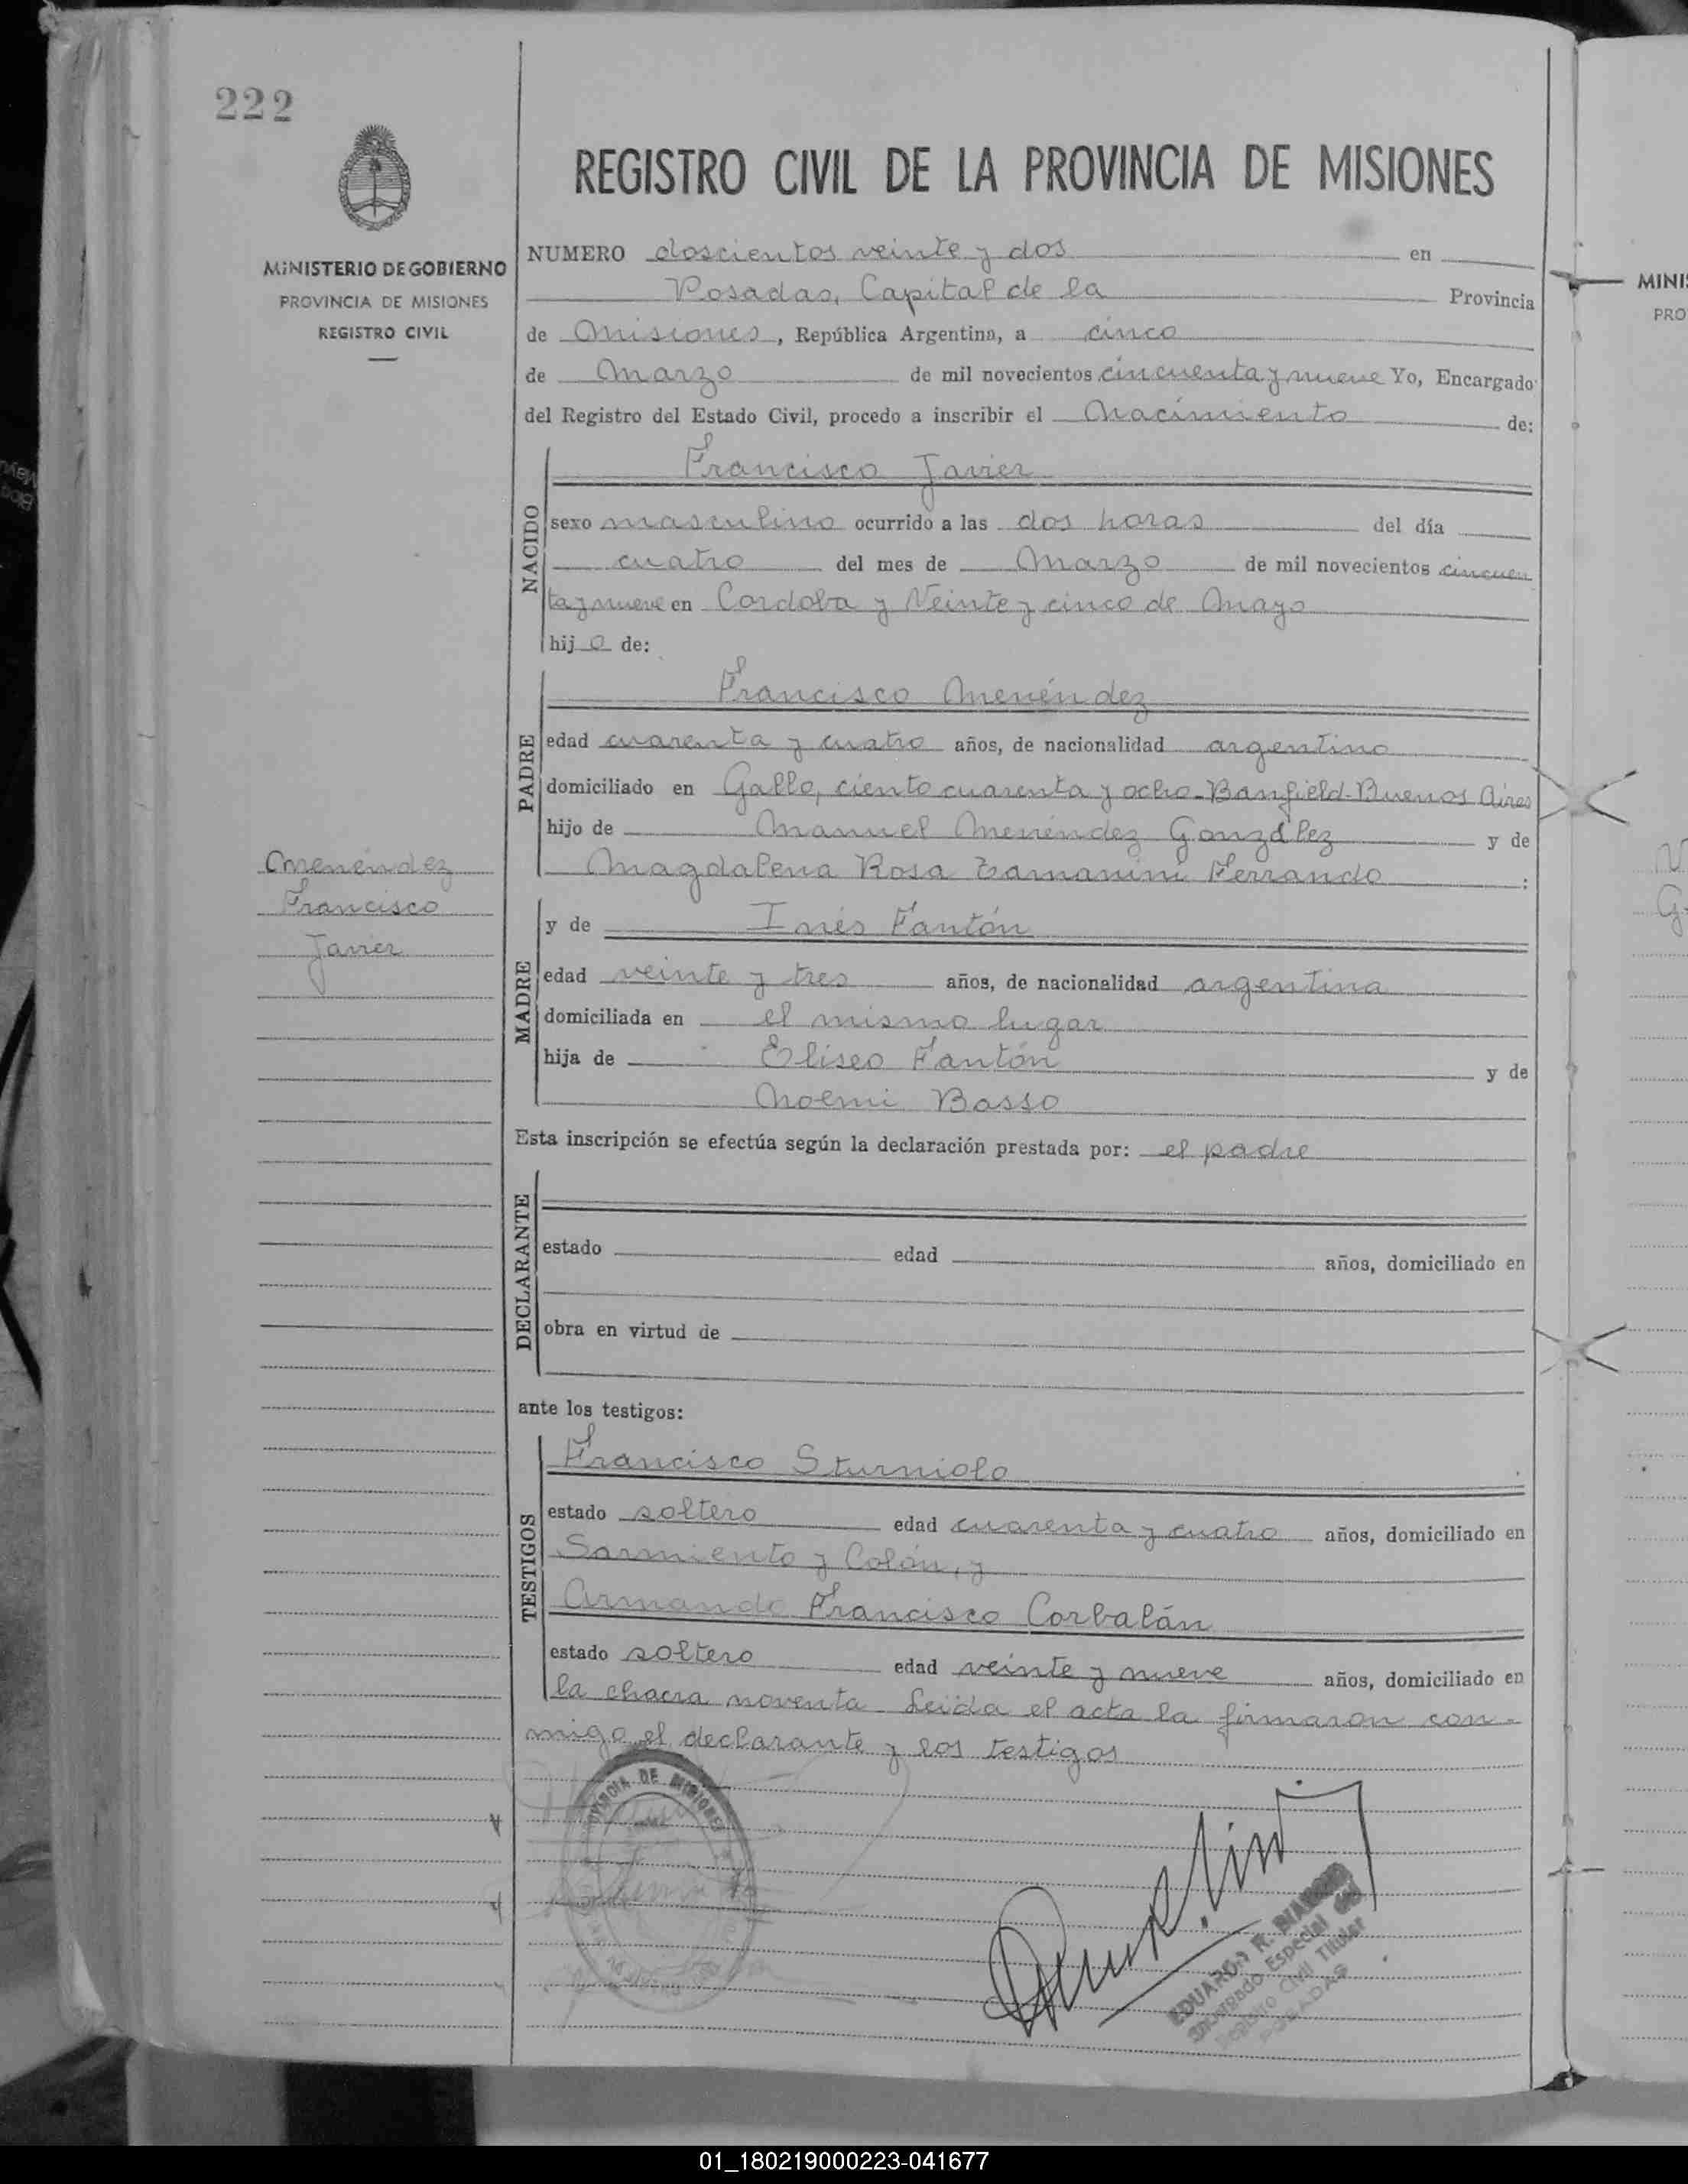 222
REGISTRO CIVIL DE LA PROVINCIA DE MISIONES
MINISTERIO DE GOBIERNO
PROVINCIA DE MISIONES
REGISTRO CIVIL
NUMERO doscientos veinte y dos en
Posadas, Capital de la Provincia
de Misiones, República Argentina, a cinco
de Marzo de mil novecientos cincuenta y nueve Yo, Encargado
del Registro del Estado Civil, procedo a inscribir el Nacimiento de:
NACIDO
Francisco Javier
sexo masculino ocurrido a las dos horas del día
cuatro del mes de Marzo de mil novecientos cincuen
ta y nueve en Cordoba y Veinte y cinco de Mayo
hijo de:
PADRE
Francisco Menéndez
edad cuarenta y cuatro años, de nacionalidad argentino
domiciliado en Gallo, ciento cuarenta y ocho-Banfield-Buenos Aires
hijo de Manuel Menéndez González y de
Magdalena Rosa Zamanini Ferrando :
Menéndez
Francisco
Javier
MADRE
y de Inés Fantón
edad veinte y tres años, de nacionalidad argentina
domiciliada en el mismo lugar
hija de Eliseo Fantón y de
Noemi Basso
Esta inscripción se efectúa según la declaración prestada por: el padre
DECLARANTE
estado edad años, domiciliado en
obra en virtud de
ante los testigos:
TESTIGOS
Francisco Sturniolo
estado soltero edad cuarenta y cuatro años, domiciliado en
Sarmiento y Colón, y
Armando Francisco Corbalán
estado soltero edad veinte y nueve años, domiciliado en
la chacra noventa Leida el acta la firmaron con-
migo el declarante y los testigos
PROVINCIA DE MISIONES
EDUARDO R.
Especial
Registro Civil Titular
POSADAS
MINI
PRO
01_180219000223-041677